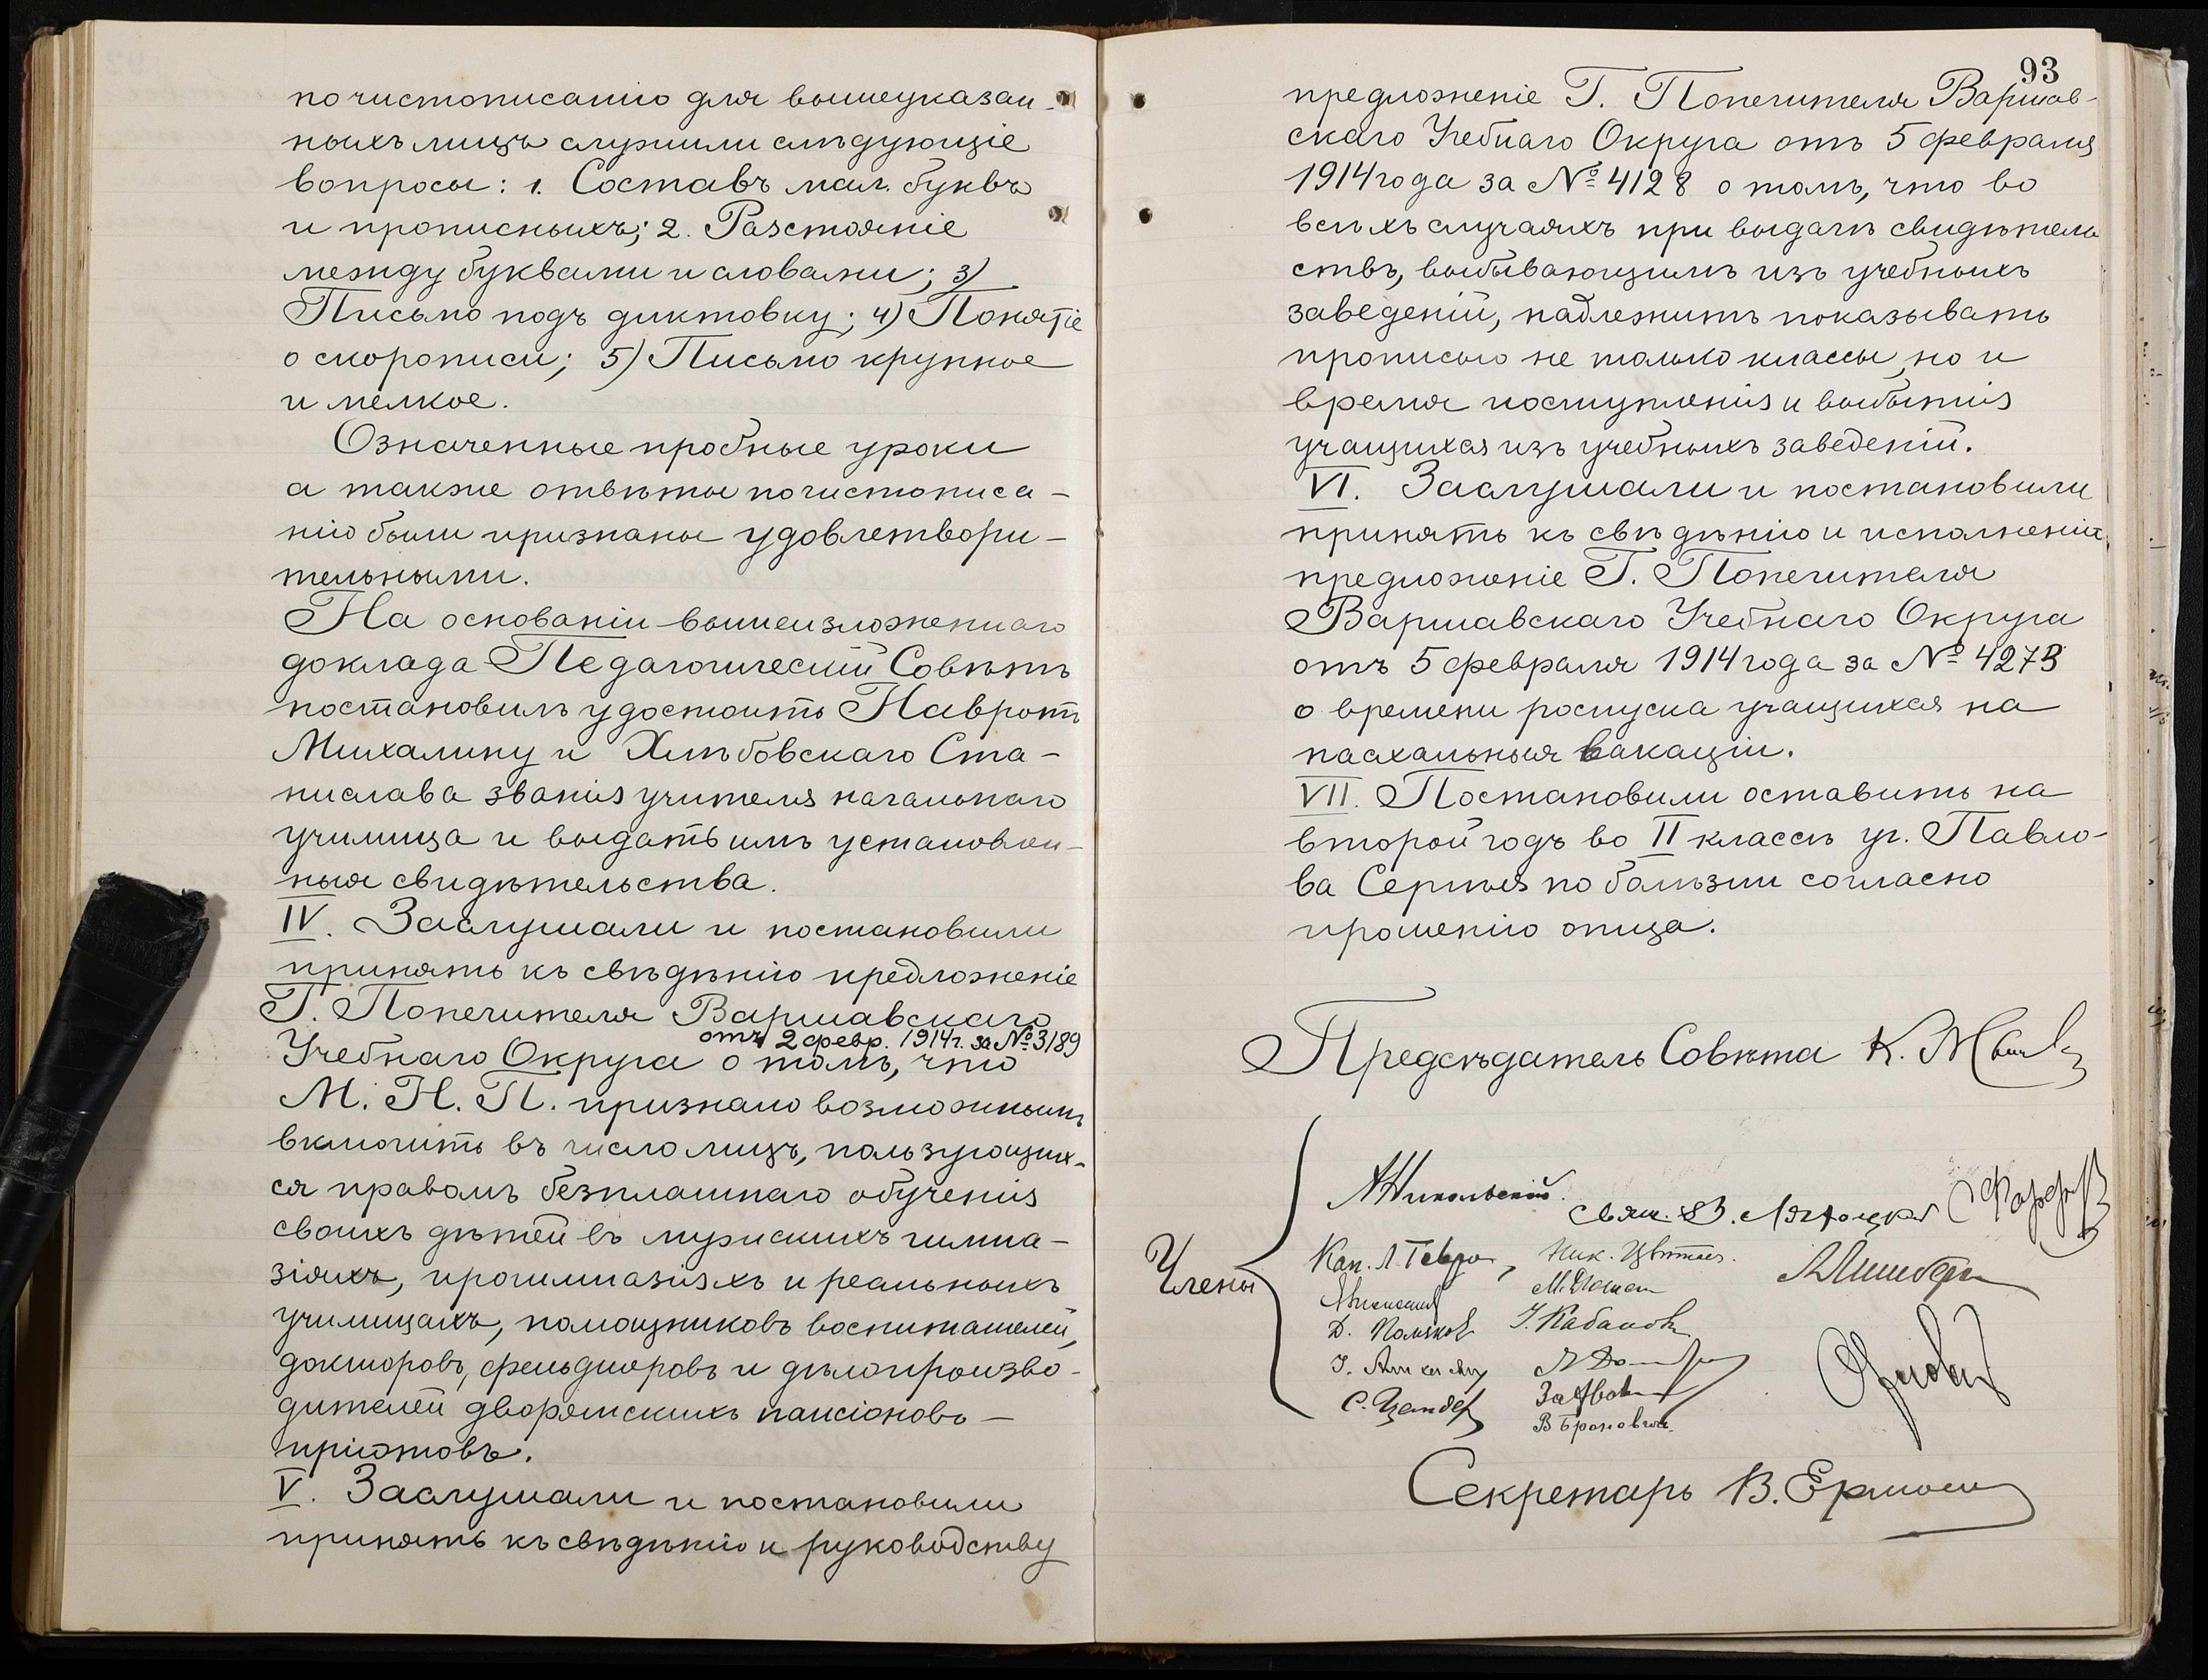 по чистописанію для вышеуказан-
ныхъ лицъ служили слѣдующіе
вопросы: 1. Составъ мал. буквъ
и прописныхъ; 2. Разстояніе
между буквами и словами; 3)
Письмо подъ диктовку; 4) Понятіе
о скорописи; 5) Письмо крупное
и мелкое.
Означенные пробные уроки
а также отвѣты по чистописа-
нію были признаны удовлетвори-
тельными.
На основаніи вышеизложеннаго
доклада Педагогическій Совѣтъ
постановилъ удостоить Навротъ
Михалину и Хлѣбовскаго Ста-
нислава званія учителя начальнаго
училища и выдать имъ установлен-
ныя свидѣтельства.
IV. Заслушали и постановили
принять къ свѣдѣнію предложеніе
Г. Попечителя Варшавскаго
отъ 2 февр. 1914 г. за № 3189
Учебнаго Округа о томъ, что
М. Н. П. признало возможнымъ
включить въ число лицъ, пользующих-
ся правомъ безплатнаго обученія
своихъ дѣтей въ мужскихъ гимна-
зіяхъ, прогимназіяхъ и реальныхъ
училищахъ, помощниковъ воспитателей,
докторовъ, фельдшеровъ и дѣлопроизво-
дителей дворянскихъ пансіоновъ-
пріютовъ.
V. Заслушали и постановили
принять къ свѣдѣнію и руководству
93
предложеніе Г. Попечителя Варшав-
скаго Учебнаго Округа отъ 5 февраля
1914 года за № 4128 о томъ, что во
всѣхъ случаяхъ при выдачѣ свидѣтель
ствъ, выбывающимъ изъ учебныхъ
заведеній, надлежитъ показывать
прописью не только классы, но и
время поступленія и выбытія
учащихся изъ учебныхъ заведеній.
VI. Заслушали и постановили
принять къ свѣдѣнію и исполненію
предложеніе Г. Попечителя
Варшавскаго Учебнаго Округа
отъ 5 февраля 1914 года за № 4273
о времени роспуска учащихся на
пасхальныя вакаціи.
VII. Постановили оставить на
второй годъ во II классѣ уч. Павло-
ва Сергѣя по болѣзни согласно
прошенію отца.
Предсѣдатель Совѣта К.
Члены
А Никольскій.
Свящ. В.
Кап. Л.
Ник.
М.
Д. Поляковъ
І. Кабановъ
І.
С. Цандеръ
В
Секретарь В.